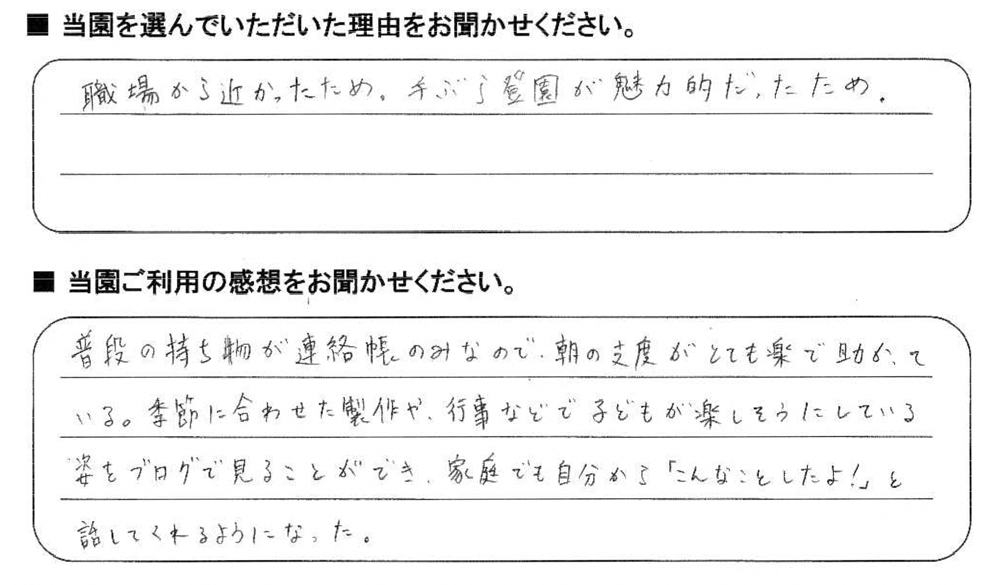 ■ 当園を選んでいただいた理由をお聞かせください。
職場から近かったため。手ぶら登園が魅力的だったため。
■ 当園ご利用の感想をお聞かせください。
普段の持ち物が連絡帳のみなので、朝の支度がとても楽で助かって
いる。季節に合わせた製作や、行事などで子どもが楽しそうにしている
姿をブログで見ることができ、家庭でも自分から「こんなことしたよ！」と
話してくれるようになった。